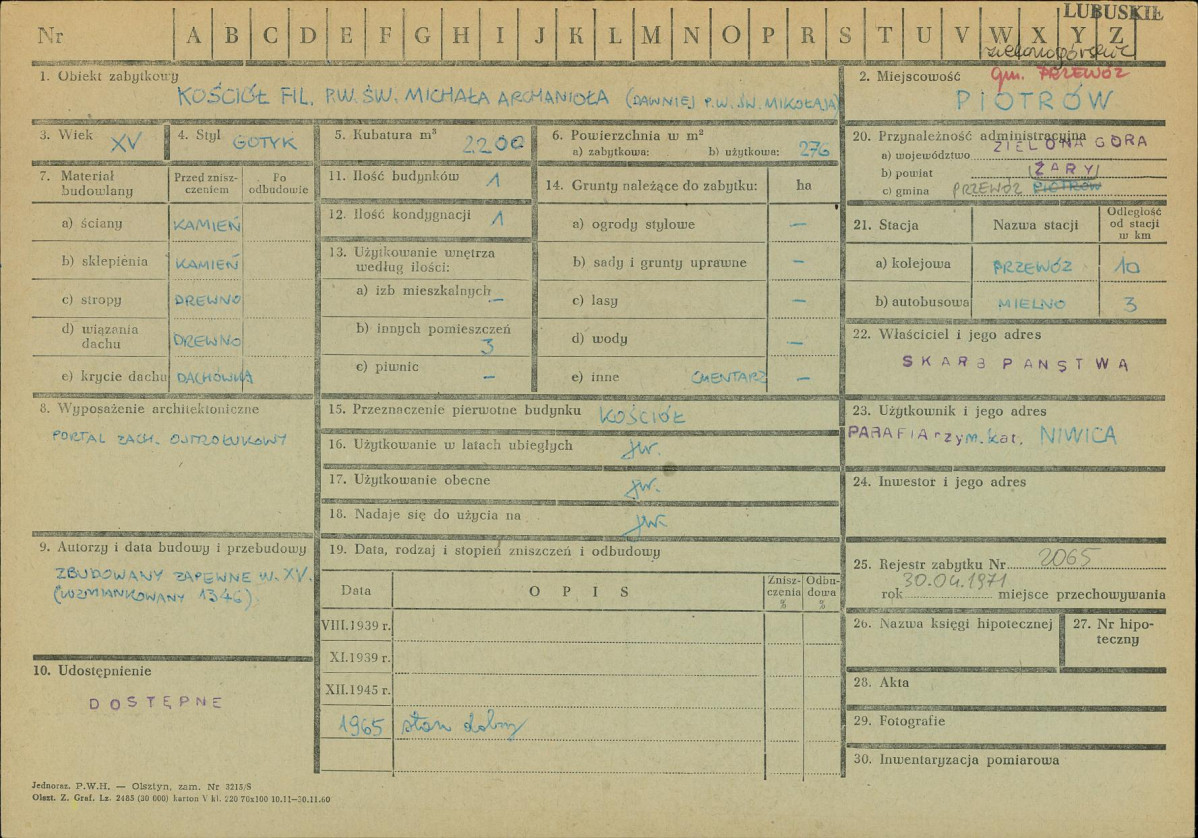 LUBUSKIE
Nr A B C D E F G H I J K L M N O P R S T U V W X Y Z
zielonogórskie
1. Obiekt zabytkowy
KOŚCIÓŁ FIL. P.W. ŚW. MICHAŁA ARCHANIOŁA (DAWNIEJ P.W. ŚW. MIKOŁAJA)
2. Miejscowość gm. PRZEWÓZ
PIOTRÓW
3. Wiek XV
4. Styl GOTYK
5. Kubatura m³ 2200
6. Powierzchnia w m²
a) zabytkowa: b) użytkowa: 276
7. Materiał budowlany
Przed zniszczeniem
Po odbudowie
a) ściany KAMIEŃ
b) sklepienia KAMIEŃ
c) stropy DREWNO
d) wiązania dachu DREWNO
e) krycie dachu DACHÓWKA
8. Wyposażenie architektoniczne
PORTAL ZACH. OSTROŁUKOWY
9. Autorzy i data budowy i przebudowy
ZBUDOWANY ZAPEWNE W. XV.
(WZMIANKOWANY 1346)
10. Udostępnienie
DOSTĘPNE
11. Ilość budynków 1
12. Ilość kondygnacji 1
13. Użytkowanie wnętrza według ilości:
a) izb mieszkalnych –
b) innych pomieszczeń 3
c) piwnic –
14. Grunty należące do zabytku: ha
a) ogrody stylowe –
b) sady i grunty uprawne –
c) lasy –
d) wody –
e) inne CMENTARZ –
15. Przeznaczenie pierwotne budynku KOŚCIÓŁ
16. Użytkowanie w latach ubiegłych jw.
17. Użytkowanie obecne jw.
18. Nadaje się do użycia na jw.
19. Data, rodzaj i stopień zniszczeń i odbudowy
Data OPIS Zniszczenia % Odbudowa %
VIII.1939 r.
XI.1939 r.
XII.1945 r.
1965 stan dobry
20. Przynależność administracyjna
a) województwo ZIELONA GÓRA
b) powiat ŻARY
c) gmina PRZEWÓZ PIOTRÓW
21. Stacja Nazwa stacji Odległość od stacji w km
a) kolejowa PRZEWÓZ 10
b) autobusowa MIELNO 3
22. Właściciel i jego adres
SKARB PAŃSTWA
23. Użytkownik i jego adres
PARAFIA rzym.kat. NIWICA
24. Inwestor i jego adres
25. Rejestr zabytku Nr 2065
30.04.1971
rok miejsce przechowywania
26. Nazwa księgi hipotecznej
27. Nr hipoteczny
28. Akta
29. Fotografie
30. Inwentaryzacja pomiarowa
Jednoraz. P.W.H. — Olsztyn, zam. Nr 3215/S
Olszt. Z. Graf. Lz. 2485 (30 000) karton V kl. 220 70x100 10.11—30.11.60